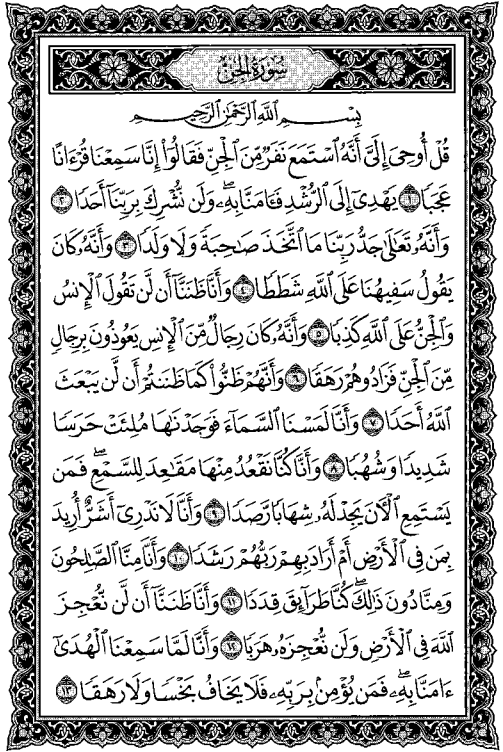 سُورَةُ الجِنِّ
بِسْمِ اللَّهِ الرَّحْمَٰنِ الرَّحِيمِ
قُلْ أُوحِيَ إِلَيَّ أَنَّهُ ٱسْتَمَعَ نَفَرٌ مِّنَ ٱلْجِنِّ فَقَالُوٓا۟ إِنَّا سَمِعْنَا قُرْءَانًا
عَجَبًا ١ يَهْدِىٓ إِلَى ٱلرُّشْدِ فَـَٔامَنَّا بِهِۦ ۖ وَلَن نُّشْرِكَ بِرَبِّنَآ أَحَدًا ٢
وَأَنَّهُۥ تَعَٰلَىٰ جَدُّ رَبِّنَا مَا ٱتَّخَذَ صَٰحِبَةً وَلَا وَلَدًا ٣ وَأَنَّهُۥ كَانَ
يَقُولُ سَفِيهُنَا عَلَى ٱللَّهِ شَطَطًا ٤ وَأَنَّا ظَنَنَّآ أَن لَّن تَقُولَ ٱلْإِنسُ
وَٱلْجِنُّ عَلَى ٱللَّهِ كَذِبًا ٥ وَأَنَّهُۥ كَانَ رِجَالٌ مِّنَ ٱلْإِنسِ يَعُوذُونَ بِرِجَالٍ
مِّنَ ٱلْجِنِّ فَزَادُوهُمْ رَهَقًا ٦ وَأَنَّهُمْ ظَنُّوا۟ كَمَا ظَنَنتُمْ أَن لَّن يَبْعَثَ
ٱللَّهُ أَحَدًا ٧ وَأَنَّا لَمَسْنَا ٱلسَّمَآءَ فَوَجَدْنَٰهَا مُلِئَتْ حَرَسًا
شَدِيدًا وَشُهُبًا ٨ وَأَنَّا كُنَّا نَقْعُدُ مِنْهَا مَقَٰعِدَ لِلسَّمْعِ ۖ فَمَن
يَسْتَمِعِ ٱلْـَٔانَ يَجِدْ لَهُۥ شِهَابًا رَّصَدًا ٩ وَأَنَّا لَا نَدْرِىٓ أَشَرٌّ أُرِيدَ
بِمَن فِى ٱلْأَرْضِ أَمْ أَرَادَ بِهِمْ رَبُّهُمْ رَشَدًا ١٠ وَأَنَّا مِنَّا ٱلصَّٰلِحُونَ
وَمِنَّا دُونَ ذَٰلِكَ ۖ كُنَّا طَرَآئِقَ قِدَدًا ١١ وَأَنَّا ظَنَنَّآ أَن لَّن نُّعْجِزَ
ٱللَّهَ فِى ٱلْأَرْضِ وَلَن نُّعْجِزَهُۥ هَرَبًا ١٢ وَأَنَّا لَمَّا سَمِعْنَا ٱلْهُدَىٰٓ
ءَامَنَّا بِهِۦ ۖ فَمَن يُؤْمِنۢ بِرَبِّهِۦ فَلَا يَخَافُ بَخْسًا وَلَا رَهَقًا ١٣